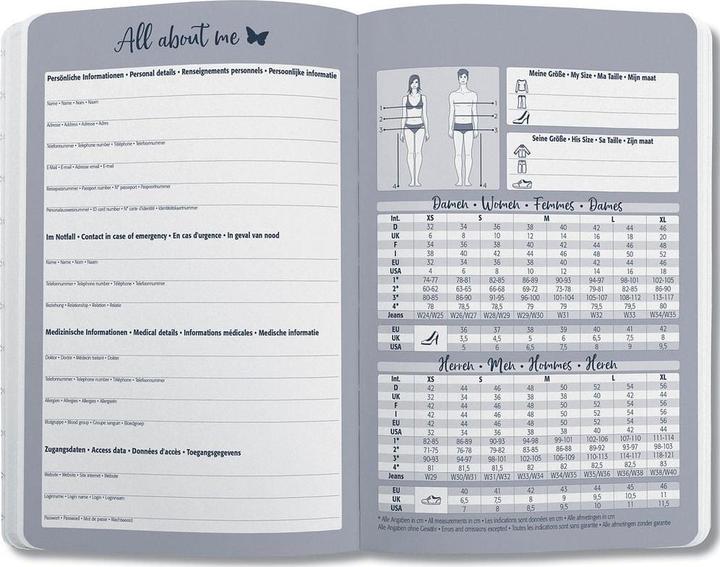 All about me
Persönliche Informationen • Personal details • Renseignements personnels • Persoonlijke informatie
Name • Name • Nom • Naam
Adresse • Address • Adresse • Adres
Telefonnummer • Telephone number • Téléphone • Telefoonnummer
E-Mail • E-mail • Adresse email • E-mail
Reisepassnummer • Passport number • N° passeport • Paspoortnummer
Personalausweisnummer • ID card number • N° carte d'identité • Identiteitskaartnummer
Im Notfall • Contact in case of emergency • En cas d'urgence • In geval van nood
Name • Name • Nom • Naam
Telefonnummer • Telephone number • Téléphone • Telefoonnummer
Beziehung • Relationship • Relation • Relatie
Medizinische Informationen • Medical details • Informations médicales • Medische informatie
Doktor • Doctor • Médecin traitant • Dokter
Telefonnummer • Telephone number • Téléphone • Telefoonnummer
Allergien • Allergies • Allergies • Allergieën
Blutgruppe • Blood group • Groupe sanguin • Bloedgroep
Zugangsdaten • Access data • Données d'accès • Toegangsgegevens
Website • Website • Site internet • Website
Loginname • Login name • Login • Loginnaam
Passwort • Password • Mot de passe • Wachtwoord
1 1
2 2
3 3
4 4
Meine Größe • My Size • Ma Taille • Mijn maat
Seine Größe • His Size • Sa Taille • Zijn maat
Damen • Women • Femmes • Dames
Int. XS S M L XL
D 32 34 36 38 40 42 44 46
UK 6 8 10 12 14 16 18 20
F 34 36 38 40 42 44 46 48
I 38 40 42 44 46 48 50 52
EU 32 34 36 38 40 42 44 46
USA 4 6 8 10 12 14 16 18
1* 74-77 78-81 82-85 86-89 90-93 94-97 98-101 102-105
2* 60-62 63-65 66-68 69-72 73-78 79-81 82-85 86-90
3* 80-85 86-90 91-95 96-100 101-104 105-107 108-112 113-117
4* 78 78,5 78,5 79 79 79,5 79,5 80
Jeans W24/W25 W26/W27 W28/W29 W29/W30 W31 W32 W33 W34/W35
EU 36 37 38 39 40 41 42
UK 3,5 4,5 5 6 6,5 7,5 8
USA 5 6 6,5 7,5 8 9 9,5
Herren • Men • Hommes • Heren
Int. XS S M L XL
D 42 44 46 48 50 52 54 56
UK 32 34 36 38 38 40 42 44
F 42 44 46 48 50 52 54 56
I 42 44 46 48 50 52 54 56
EU 42 44 46 48 50 52 54 56
USA 32 34 36 38 38 40 42 44
1* 82-85 86-89 90-93 94-98 99-101 102-106 107-110 111-114
2* 71-75 76-78 79-82 83-85 86-88 89-92 93-97 98-103
3* 90-93 94-97 98-101 102-105 106-109 110-113 114-117 118-121
4* 81 81,5 81,5 82 82 82,5 82,5 83
Jeans W29 W30/W31 W31/W32 W33/W34 W34/W35 W35/W36 W36/W38 W38/W40
EU 40 41 42 43 44 45 46
UK 6,5 7,5 8 9 9,5 10,5 11
USA 7 8 8,5 9,5 10 11 11,5
* Alle Angaben in cm • All measurements in cm • Les indications sont données en cm • Alle afmetingen in cm
Alle Angaben ohne Gewähr • Errors and omissions excepted • Toutes les indications sont sans garantie • Alle afmetingen zonder garantie